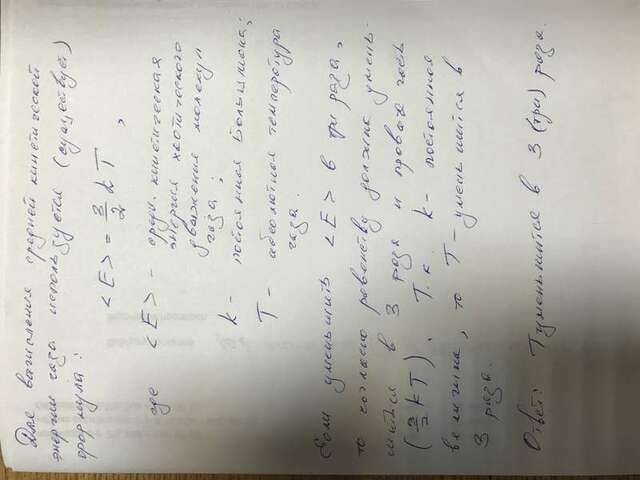 Для вычисления средней кинетической
энергии газа используется (существует)
формула:
<E> = 3/2 kT ,
где <E> - средн. кинетическая
энергия хаотического
движения молекул
газа;
k - постоянная Больцмана;
T - абсолютная температура
газа.
Если уменьшить <E> в три раза,
то согласно равенству должна умень-
шиться в 3 раза и правая часть
(3/2 kT). Т.к. k - постоянная
величина, то T - уменьшится в
3 раза.
Ответ: T уменьшится в 3 (три) раза.